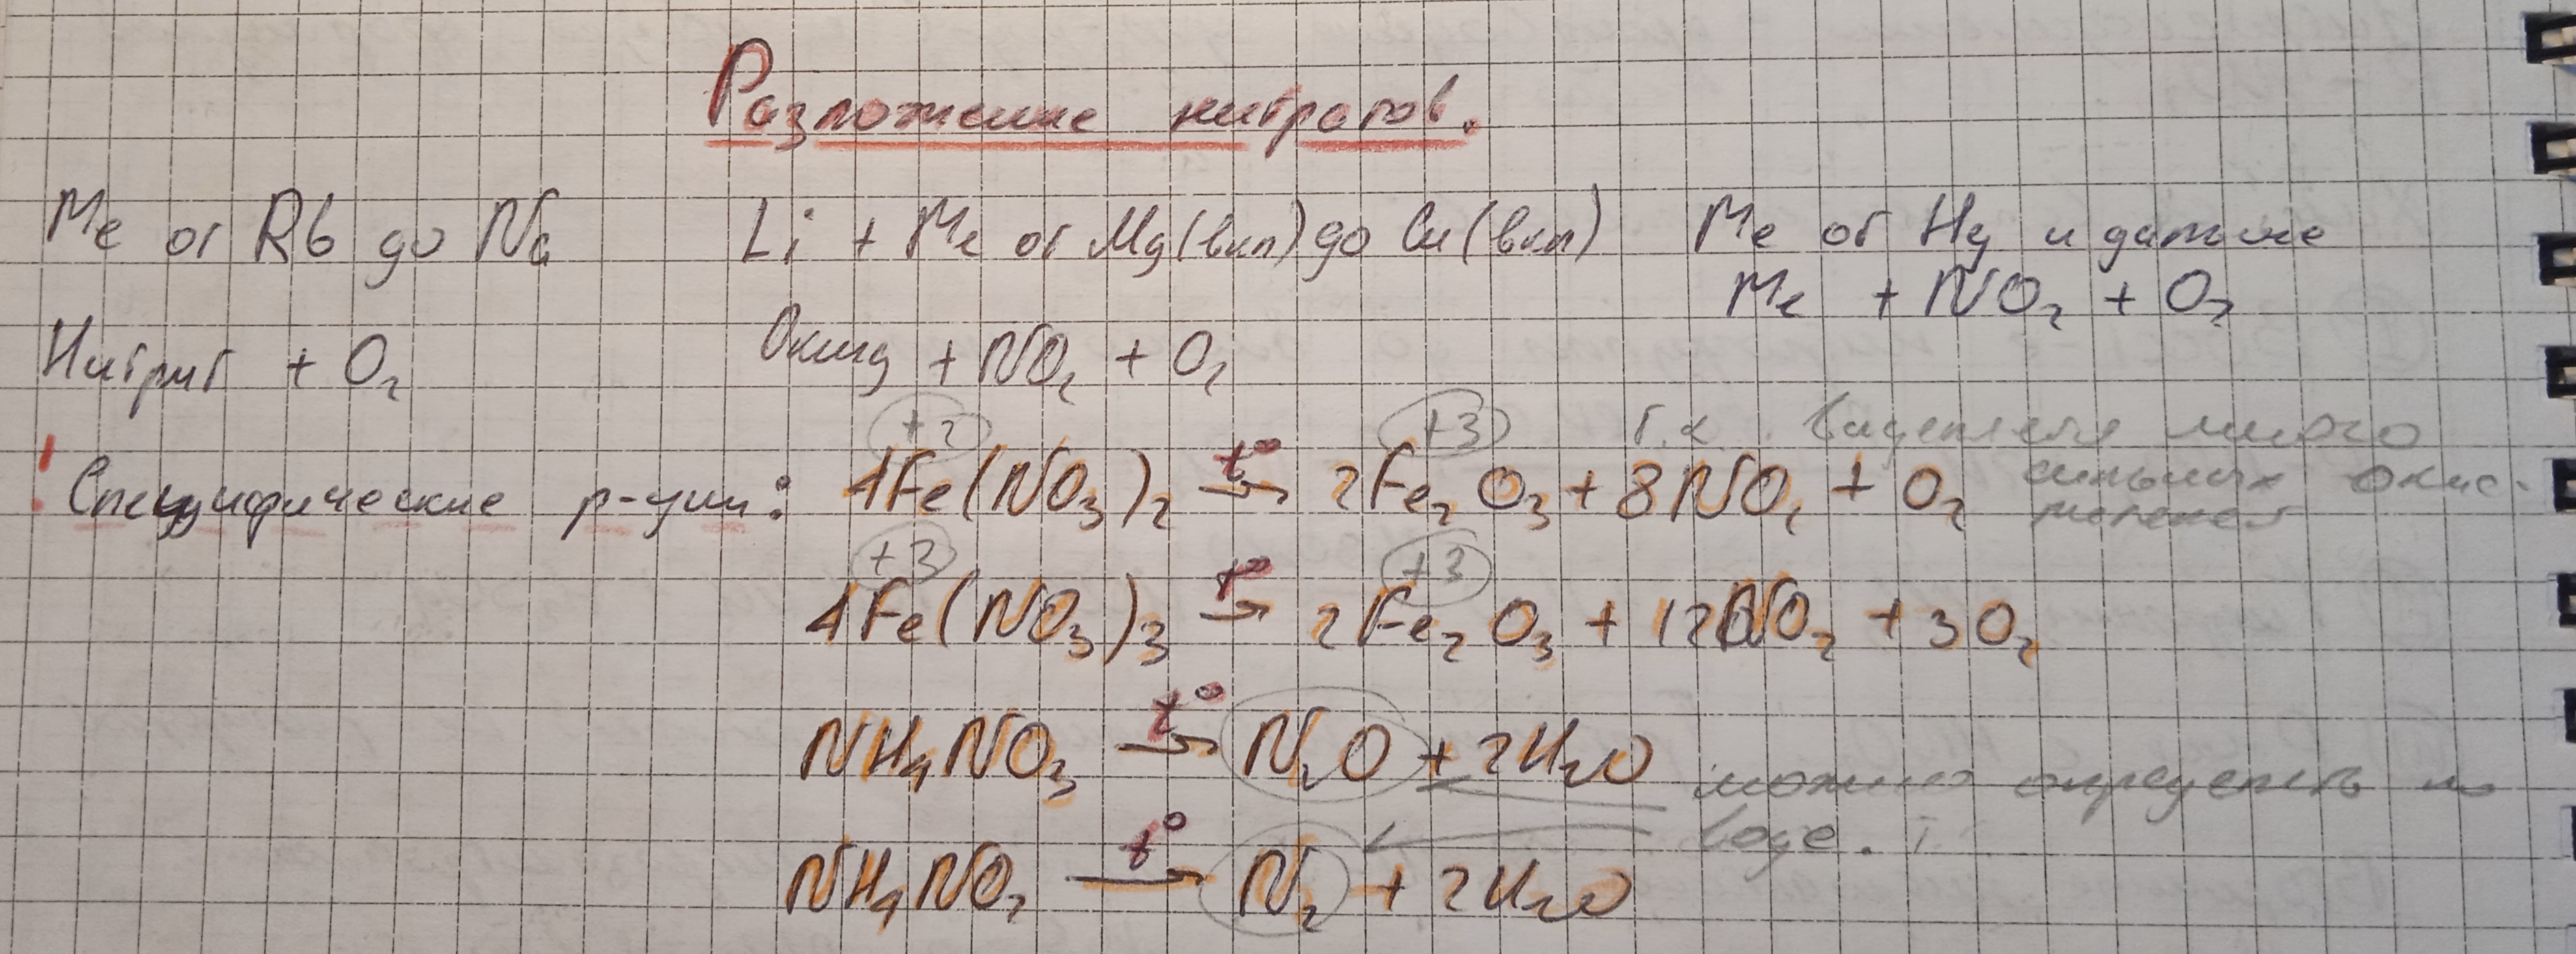 Разложение нитратов.
Me от Rb до Na
Нитрит + O₂
Li + Me от Mg(вкл) до Cu(вкл)
Оксид + NO₂ + O₂
Me от Hg и дальше
Me + NO₂ + O₂
! Специфические р-ции:
+2 +3
4Fe(NO₃)₂ t°→ 2Fe₂O₃ + 8NO₂ + O₂
т.к. выделяется много
сильных окис-
лителей
+3 +3
4Fe(NO₃)₃ t°→ 2Fe₂O₃ + 12NO₂ + 3O₂
NH₄NO₃ t°→ N₂O + 2H₂O
можно определить по
воде.
NH₄NO₂ t°→ N₂ + 2H₂O